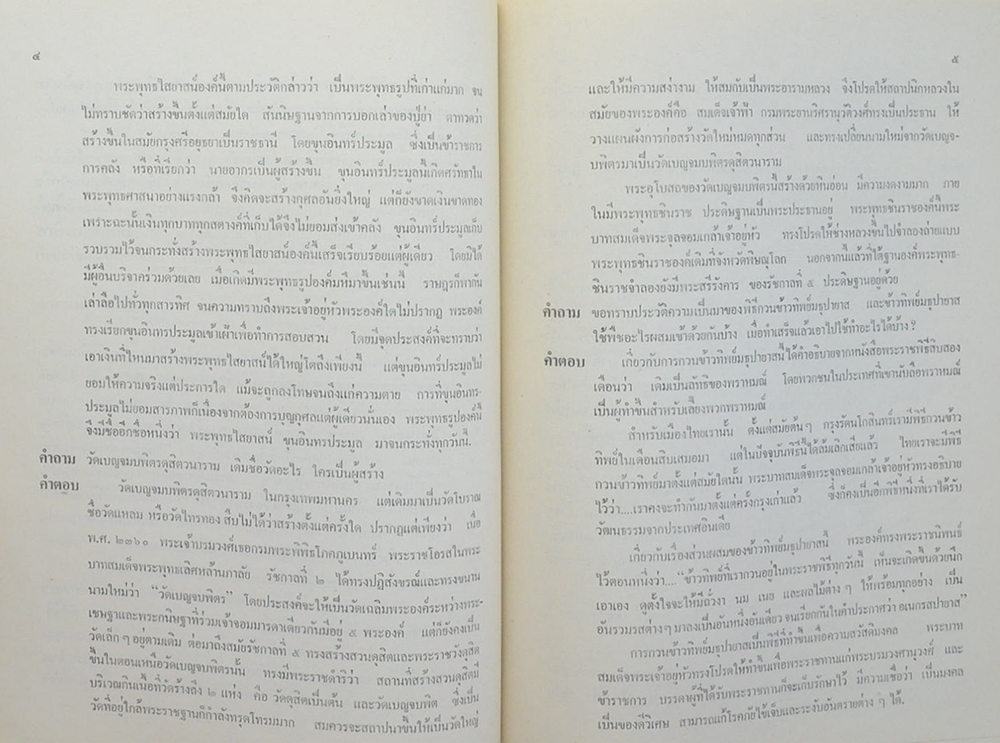 ๔
พระพุทธไสยาสน์องค์นี้ตามประวัติกล่าวว่า เป็นพระพุทธรูปที่เก่าแก่มาก จน
ไม่ทราบชัดว่าสร้างขึ้นตั้งแต่สมัยใด สันนิษฐานจากการบอกเล่าของปู่ย่า ตาทวดว่า
สร้างขึ้นในสมัยกรุงศรีอยุธยาเป็นราชธานี โดยขุนอินทร์ประมูล ซึ่งเป็นข้าราชการ
การคลัง หรือที่เรียกว่า นายอากรเป็นผู้สร้างขึ้น ขุนอินทร์ประมูลนี้เกิดศรัทธาใน
พระพุทธศาสนาอย่างแรงกล้า จึงคิดจะสร้างกุศลอันยิ่งใหญ่ แต่ก็ยังขาดเงินขาดทอง
เพราะฉะนั้นเงินทุกบาททุกสตางค์ที่เก็บได้จึงไม่ยอมส่งเข้าคลัง ขุนอินทร์ประมูลเก็บ
รวบรวมไว้จนกระทั่งสร้างพระพุทธไสยาสน์องค์นี้เสร็จเรียบร้อยแต่ผู้เดียว โดยมิได้
มีผู้อื่นบริจาคร่วมด้วยเลย เมื่อเกิดมีพระพุทธรูปองค์มหึมาขึ้นเช่นนี้ ราษฎรก็พากัน
เล่าลือไปทั่วทุกสารทิศ จนความทราบถึงพระเจ้าอยู่หัวพระองค์ใดไม่ปรากฏ พระองค์
ทรงเรียกขุนอินทร์ประมูลเข้าเฝ้าเพื่อทำการสอบสวน โดยมีจุดประสงค์ที่จะทราบว่า
เอาเงินที่ไหนมาสร้างพระพุทธไสยาสน์ได้ใหญ่โตถึงเพียงนี้ แต่ขุนอินทร์ประมูลไม่
ยอมให้ความจริงแต่ประการใด แม้จะถูกลงโทษจนถึงแก่ความตาย การที่ขุนอินทร-
ประมูลไม่ยอมสารภาพก็เนื่องจากต้องการบุญกุศลแต่ผู้เดียวนั่นเอง พระพุทธรูปองค์นี้
จึงมีชื่ออีกชื่อหนึ่งว่า พระพุทธไสยาสน์ ขุนอินทร์ประมูล มาจนกระทั่งทุกวันนี้.
คำถาม วัดเบญจมบพิตรดุสิตวนาราม เดิมชื่อวัดอะไร ใครเป็นผู้สร้าง
คำตอบ วัดเบญจมบพิตรดุสิตวนาราม ในกรุงเทพมหานคร แต่เดิมมาเป็นวัดโบราณ
ชื่อวัดแหลม หรือวัดไทรทอง สืบไม่ได้ว่าสร้างตั้งแต่ครั้งใด ปรากฏแต่เพียงว่า เมื่อ
พ.ศ. ๒๓๖๐ พระเจ้าบรมวงศ์เธอกรมพระพิพิธโภคภูเบนทร์ พระราชโอรสในพระ
บาทสมเด็จพระพุทธเลิศหล้านภาลัย รัชกาลที่ ๒ ได้ทรงปฏิสังขรณ์และทรงขนาน
นามใหม่ว่า “วัดเบญจบพิตร” โดยประสงค์จะให้เป็นวัดเฉลิมพระองค์ระหว่างพระ-
เชษฐาและพระกนิษฐาที่ร่วมเจ้าจอมมารดาเดียวกันมีอยู่ ๕ พระองค์ แต่ก็ยังคงเป็น
วัดเล็กๆ อยู่ตามเดิม ต่อมาถึงสมัยรัชกาลที่ ๕ ทรงสร้างสวนดุสิตและพระราชวังดุสิต
ขึ้นในตอนเหนือวัดเบญจบพิตรนั้น ทรงมีพระราชดำริว่า สถานที่สร้างสวนดุสิตมี
บริเวณกินเนื้อที่วัดร้างถึง ๒ แห่ง คือ วัดดุสิตเป็นต้น และวัดเบญจบพิต ซึ่งเป็น
วัดที่อยู่ใกล้พระราชฐานก็กำลังทรุดโทรมมาก สมควรจะสถาปนาขึ้นให้เป็นวัดใหญ่
๕
และให้มีความสง่างาม ให้สมกับเป็นพระอารามหลวง จึงโปรดให้สถาปนิกหลวงใน
สมัยของพระองค์คือ สมเด็จเจ้าฟ้า กรมพระยานริศรานุวัดิวงศ์ทรงเป็นประธาน ให้
วางแผนผังการก่อสร้างวัดใหม่หมดทุกส่วน และทรงเปลี่ยนนามใหม่จากวัดเบญจ-
บพิตรมาเป็นวัดเบญจมบพิตรดุสิตวนาราม
พระอุโบสถของวัดเบญจมบพิตรนี้สร้างด้วยหินอ่อน มีความงดงามมาก ภาย
ในมีพระพุทธชินราช ประดิษฐานเป็นพระประธานอยู่ พระพุทธชินราชองค์นี้พระ
บาทสมเด็จพระจุลจอมเกล้าเจ้าอยู่หัว ทรงโปรดให้ช่างหลวงขึ้นไปจำลองถ่ายแบบ
พระพุทธชินราชองค์เดิมที่จังหวัดพิษณุโลก นอกจากนั้นแล้วที่ใต้ฐานองค์พระพุทธ-
ชินราชจำลองยังมีพระสรีรังคาร ของรัชกาลที่ ๕ ประดิษฐานอยู่ด้วย
คำถาม ขอทราบประวัติความเป็นมาของพิธีกวนข้าวทิพย์มธุปายาส และข้าวทิพย์มธุปายาส
ใช้พืชอะไรผสมเข้าด้วยกันบ้าง เมื่อทำเสร็จแล้วเอาไปใช้ทำอะไรได้บ้าง?
คำตอบ เกี่ยวกับการกวนข้าวทิพย์มธุปายาสนี้ได้คำอธิบายจากหนังสือพระราชพิธีสิบสอง
เดือนว่า เดิมเป็นลัทธิของพราหมณ์ โดยพวกชนในประเทศที่เขานับถือพราหมณ์
เป็นผู้ทำขึ้นสำหรับเลี้ยงพวกพราหมณ์
สำหรับเมืองไทยเรานั้น ตั้งแต่สมัยต้นๆ กรุงรัตนโกสินทร์เรามีพิธีกวนข้าว
ทิพย์ในเดือนสิบเสมอมา แต่ในปัจจุบันพิธีนี้ได้ล้มเลิกเสียแล้ว ไทยเราจะมีพิธี
กวนข้าวทิพย์มาตั้งแต่สมัยใดนั้น พระบาทสมเด็จพระจุลจอมเกล้าเจ้าอยู่หัวทรงอธิบาย
ไว้ว่า....เราคงจะทำกันมาตั้งแต่ครั้งกรุงเก่าแล้ว ซึ่งก็คงเป็นอีกพิธีหนึ่งที่เราได้รับ
วัฒนธรรมจากประเทศอินเดีย
เกี่ยวกับเรื่องส่วนผสมของข้าวทิพย์มธุปายาสนี้ พระองค์ทรงพระราชนิพนธ์
ไว้ตอนหนึ่งว่า....“ข้าวทิพย์ที่เรากวนอยู่ในพระราชพิธีทุกวันนี้ เห็นจะเกิดขึ้นด้วยนึก
เอาเอง ดูตั้งใจจะให้มีถั่วงา นม เนย และผลไม้ต่างๆ ให้พร้อมทุกอย่าง เป็น
อันรวมรสต่างๆ มาลงเป็นอันหนึ่งอันเดียว จนเรียกกันในคำประกาศว่า อเนกรสปายาส”
การกวนข้าวทิพย์มธุปายาสเป็นพิธีที่ทำขึ้นเพื่อความสวัสดิมงคล พระบาท
สมเด็จพระเจ้าอยู่หัวทรงโปรดให้ทำขึ้นเพื่อพระราชทานแก่พระบรมวงศานุวงศ์ และ
ข้าราชการ บรรดาผู้ที่ได้รับพระราชทานก็จะเก็บรักษาไว้ มีความเชื่อว่า เป็นมงคล
เป็นของดีวิเศษ สามารถแก้โรคภัยไข้เจ็บและระงับอันตรายต่าง ๆ ได้.